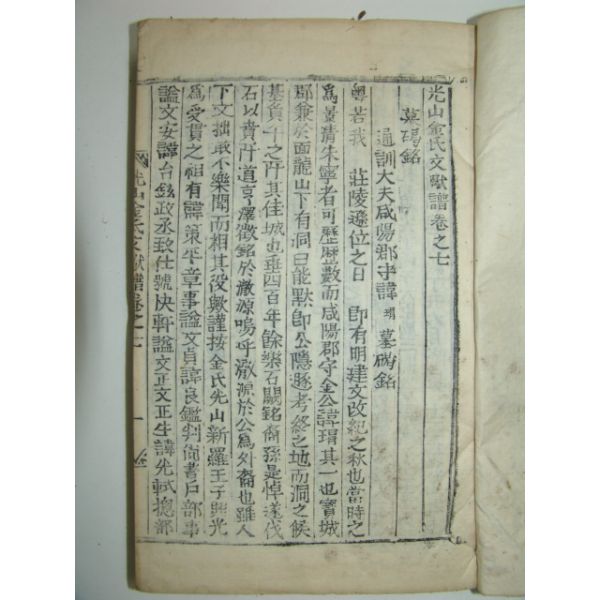 光山金氏文獻譜卷之七
墓碣銘
通訓大夫咸陽郡守諱 墓碣銘
粤若我 莊陵遜位之日 即有明建文改紀之秋也當時之
爲景清朱寧者可歷歷數而咸陽郡守金公諱 其一也寶城
郡兼於面龍山下有洞曰能默即公隱遯考終之地而洞之候
基負 之阡其佳城也垂四百年餘樂石闕銘裔孫是悼遂伐
石以賁阡道 澤徵銘於 源嗚呼 源於公爲外裔也雖人
下文拙敢不樂聞而相其役歟謹按金氏先山新羅王子興光
爲受貫之祖有諱策平章事諡文貞諱良鑑判尙書戶部事
諡文安諱台鉉政丞致仕號快軒諡文正文正生諱光軾摠部
光山金氏文獻譜卷之七 一